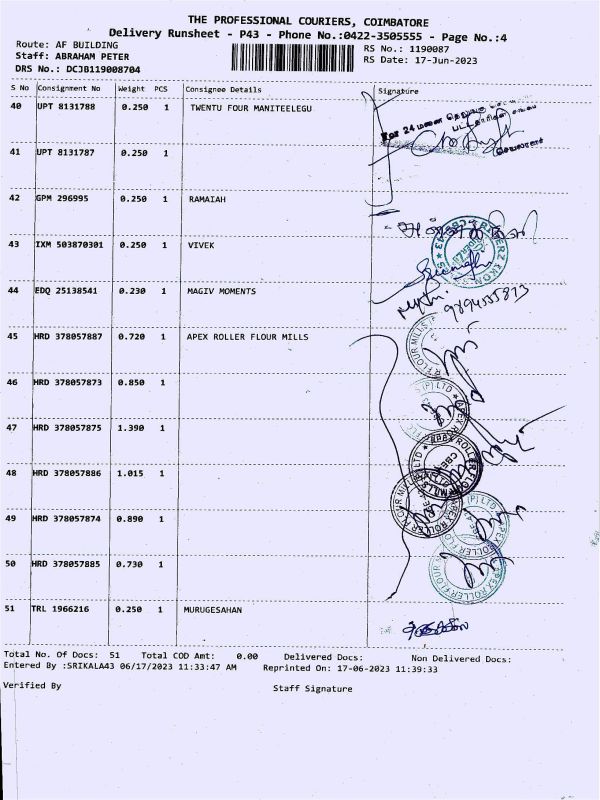 THE PROFESSIONAL COURIERS, COIMBATORE
Delivery Runsheet - P43 - Phone No.:0422-3505555 - Page No.:4
Route: AF BUILDING
RS No.: 1190087
Staff: ABRAHAM PETER
RS Date: 17-Jun-2023
DRS No.: DCJB119008704
S No Consignment No Weight PCS Consignee Details Signature
40 UPT 8131788 0.250 1 TWENTU FOUR MANITEELEGU
For 24 மனை தெலுங்கு
செயலாளர்
41 UPT 8131787 0.250 1
42 GPM 296995 0.250 1 RAMAIAH
43 IXM 503870301 0.250 1 VIVEK
44 EDQ 25138541 0.230 1 MAGIV MOMENTS
9894555813
45 HRD 378057887 0.720 1 APEX ROLLER FLOUR MILLS
46 HRD 378057873 0.850 1
47 HRD 378057875 1.390 1
48 HRD 378057886 1.015 1
49 HRD 378057874 0.890 1
50 HRD 378057885 0.730 1
51 TRL 1966216 0.250 1 MURUGESAHAN
Total No. Of Docs: 51 Total COD Amt: 0.00 Delivered Docs: Non Delivered Docs:
Entered By :SRIKALA43 06/17/2023 11:33:47 AM Reprinted On: 17-06-2023 11:39:33
Verified By Staff Signature